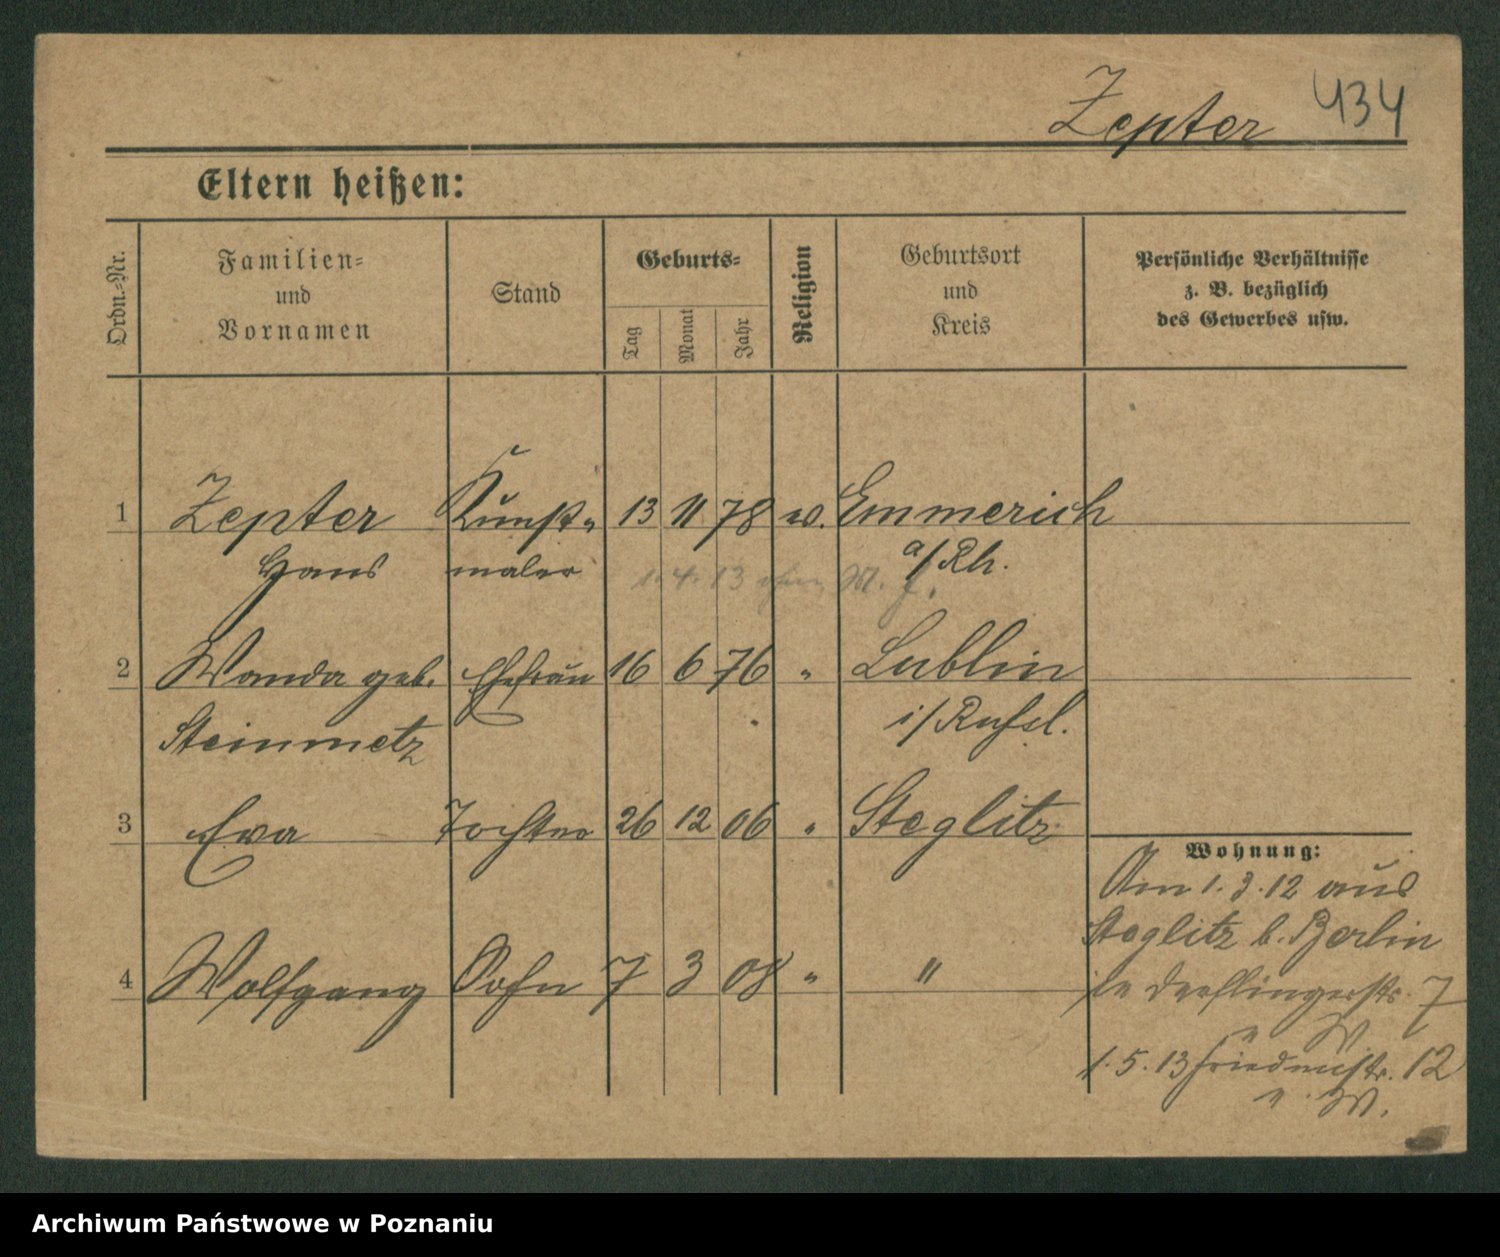 Zepter 434
Eltern heißen:
Ordn.-Nr.
Familien-
und
Vornamen
Stand
Geburts-
Tag
Monat
Jahr
Religion
Geburtsort
und
Kreis
Persönliche Verhältnisse
z. B. bezüglich
des Gewerbes usw.
1 Zepter Kunst- 13 11 78 ev. Emmerich
Hans maler a/Rh.
1. 4. 13 ohne M. J.
2 Wanda geb. Ehefrau 16 6 76 " Lublin
Steinmetz i/Russl.
3 Eva Tochter 26 12 06 " Steglitz
4 Wolfgang Sohn 7 3 08 " "
Wohnung:
Am 1. 3. 12 aus
Steglitz b. Berlin
Derflingerstr. 7
e. W.
1. 5. 13 12
e. W.
Archiwum Państwowe w Poznaniu